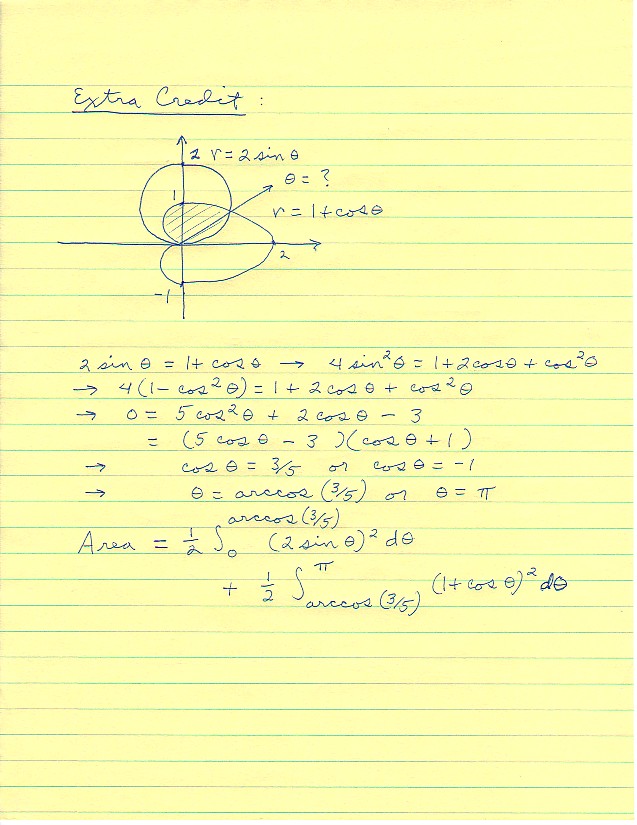 Extra Credit :
2 r = 2 sin θ
θ = ?
1
r = 1 + cos θ
2
-1
2 sin θ = 1 + cos θ → 4 sin² θ = 1 + 2 cos θ + cos² θ
→ 4 (1 - cos² θ) = 1 + 2 cos θ + cos² θ
→ 0 = 5 cos² θ + 2 cos θ - 3
= (5 cos θ - 3 )(cos θ + 1)
→ cos θ = 3/5 or cos θ = -1
→ θ = arccos (3/5) or θ = π
Area = 1/2 ∫₀^arccos (3/5) (2 sin θ)² dθ
+ 1/2 ∫_arccos (3/5)^π (1 + cos θ)² dθ